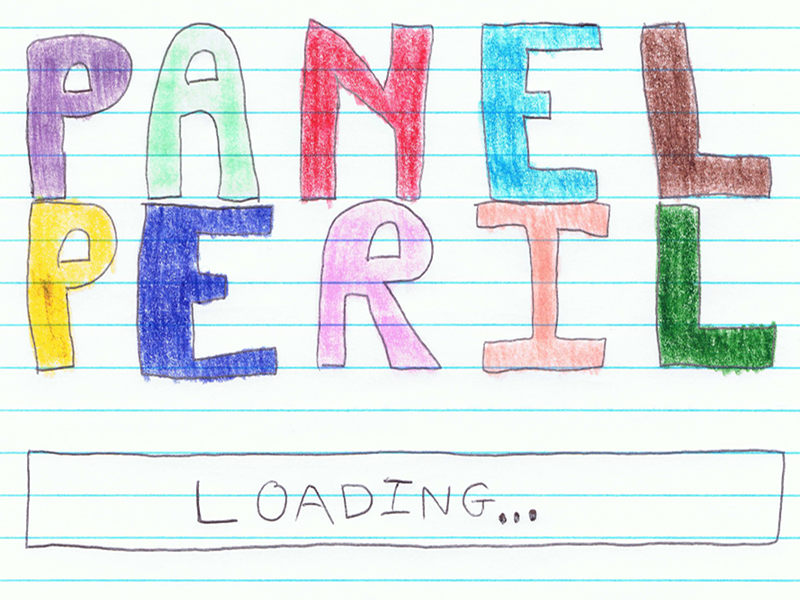 PANEL
PERIL
LOADING...